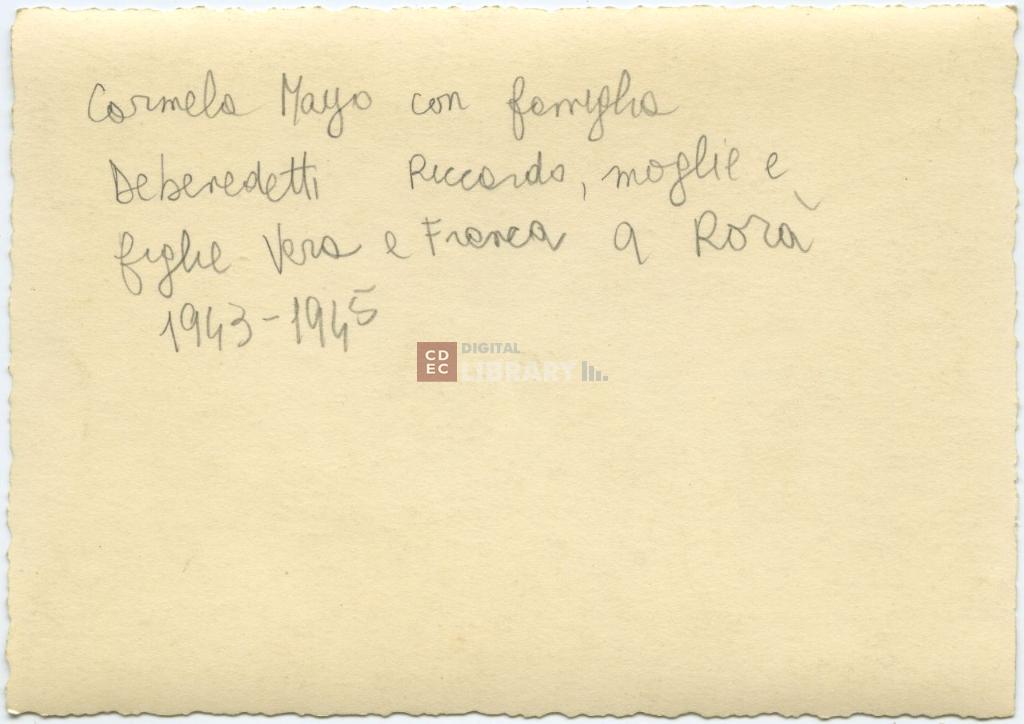 Carmela Mayo con famiglia
Debenedetti Riccardo, moglie e
figlie Vera e Franca a Rorà
1943-1945
CD
EC
DIGITAL
LIBRARY